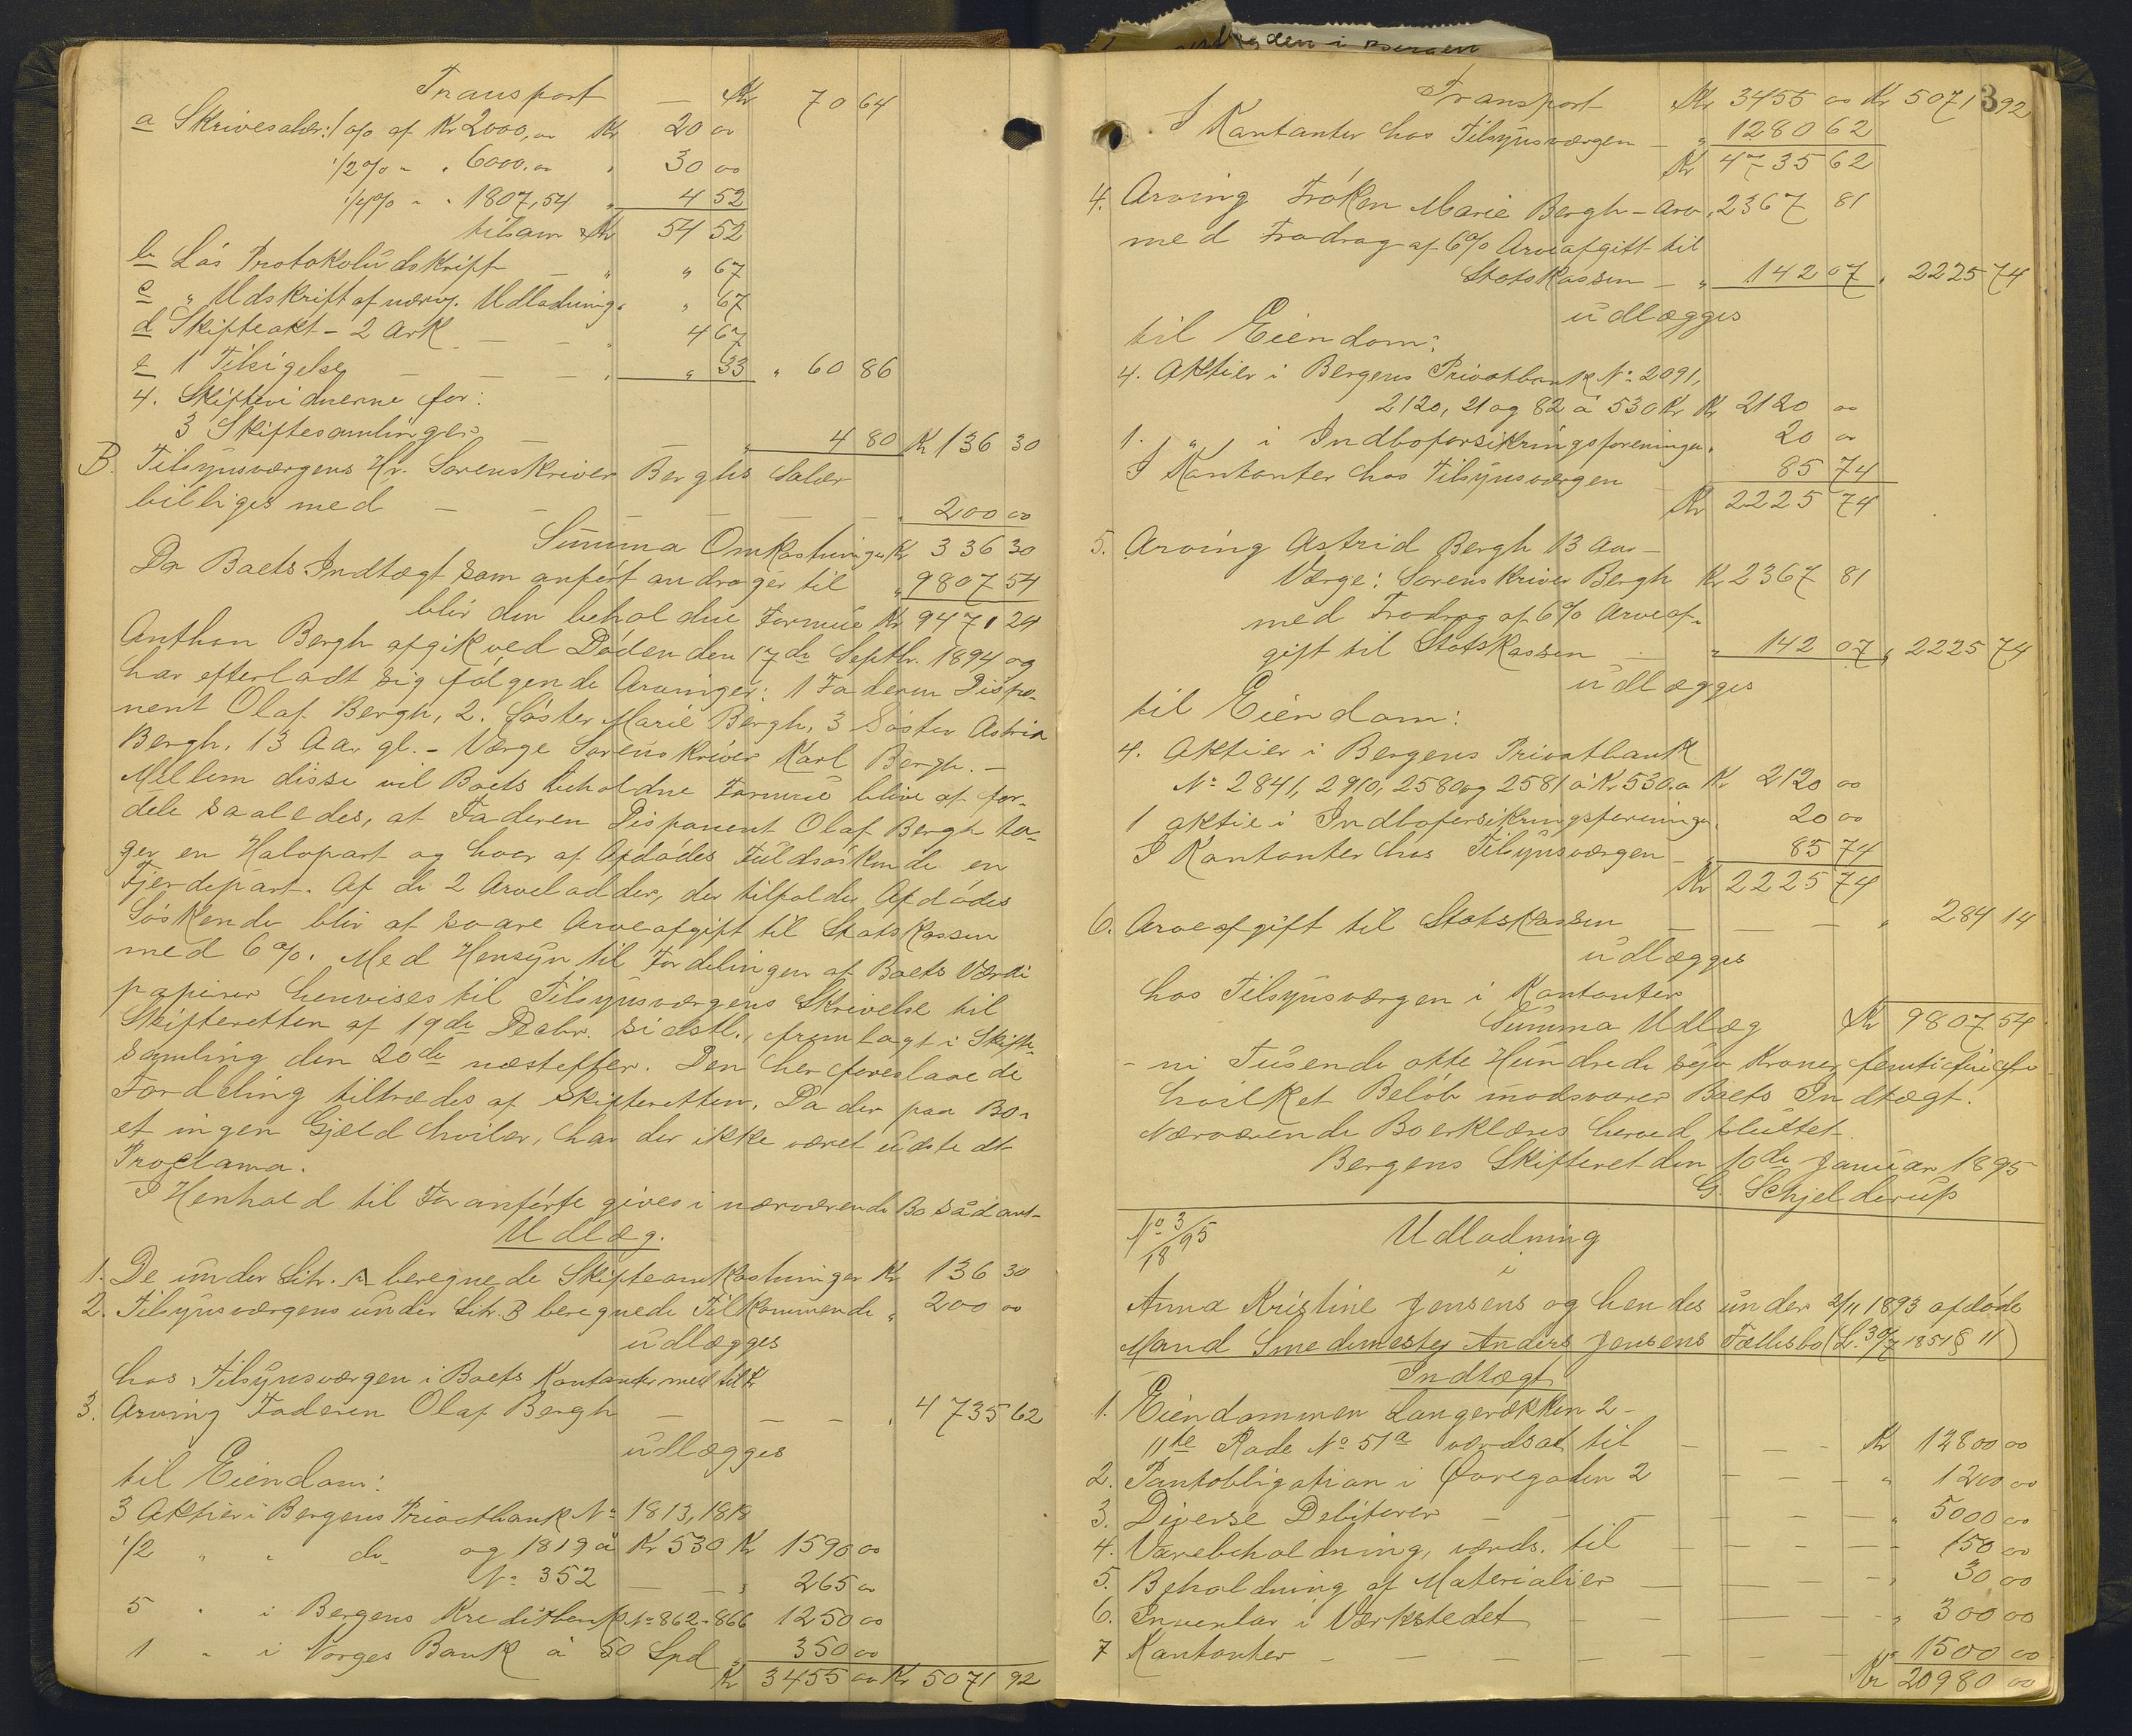 Transport — Kr 70 64
a Skrivesalær: 1 o/o af Kr 2000,00 Kr 20 00
1/2 % " " 6000.00 " 30 00
1/4 % " " 1807,54 " 4 52
tilsam Kr 54 52
b Løs Protokoludskrift — " " 67
c " Udskrift af nærv. Udlodning " " 67
d Skifteakt - 2 Ark — — " 4 67
e 1 Tilsigelse — — — " " 33 " 60 86
4. Skiftevidnerne for:
3 Skiftesamlinger — — " 4 80 Kr 136 30
B. Tilsynsværgens Hr. Sorenskriver Berghs Salær
billiges med — — — — — — " 200 00
Summa Omkostninger Kr 336 30
Da Boets Indtægt som anført andrager til " 9807 54
blir den beholdne Formue Kr 9471 24
Anthon Bergh afgik ved Døden den 17de Septbr. 1894 og
har efterladt sig følgende Arvinger: 1 Faderen Dispo-
nent Olaf Bergh, 2. Søster Marie Bergh, 3 Søster Astrid
Bergh, 13 Aar gl. - Værge Sorenskriver Karl Bergh. —
Mellem disse vil Boets beholdne Formue blive at for-
dele saaledes, at Faderen Disponent Olaf Bergh ta-
ger en Halvpart og hver af Afdødes Fuldsøskende en
Fjerdepart. Af de 2 Arvelodder, der tilfalder Afdødes
Søskende blir at svare Arveafgift til Statskassen
med 6 %. Med Hensyn til Fordelingen af Boets Værdi
papirer henvises til Tilsynsværgens Skrivelse til
Skifteretten af 19de Decbr. sidstl., fremlagt i Skifte-
samling den 20de næstefter. Den her foreslaaede
Fordeling tiltrædes af Skifteretten. Da der paa Bo-
et ingen Gjæld hviler, har der ikke været udstedt
Proclama.
I Henhold til Foranførte gives i nærværende Bo sådant
Udlæg.
1. De under Litr. A beregnede Skifteomkostninger Kr 136 30
2. Tilsynsværgens under Litr. B beregnede Tilkommende " 200 00
udlægges
hos Tilsynsværgen i Boets Kontanter med
3. Arving Faderen Olaf Bergh — — — " 4735 62
udlægges
til Eiendom:
3 Aktier i Bergens Privatbank No 1813, 1818
og 1819 à Kr 530 Kr 1590 00
1/2 " " do No 352 — — " 265 00
5 " i Bergens Kreditbank No 862-866 1250 00
1 " i Norges Bank à 50 Spd. " 350 00
Kr 3455 00 Kr 5071 92
3
Transport Kr 3455 00 Kr 5071 92
I Kontanter hos Tilsynsværgen — " 1280 62
Kr 4735 62
4. Arving Frøken Marie Bergh - Arv " 2367 81
med Fradrag af 6% Arveafgift til
Statskassen — " 142 07 " 2225 74
udlægges
til Eiendom:
4. Aktier i Bergens Privatbank No 2091,
2120, 21 og 82 à 530 Kr Kr 2120 00
1. " i Indboforsikringsforeningen " 20 00
I Kontanter hos Tilsynsværgen — 85 74
Kr 2225 74
5. Arving Astrid Bergh 13 Aar —
Værge: Sorenskriver Bergh Kr 2367 81
med Fradrag af 6% Arveaf-
gift til Statskassen — " 142 07 " 2225 74
udlægges
til Eiendom:
4. Aktier i Bergens Privatbank
No 2841, 2910, 2580 og 2581 à Kr 530.00 Kr 2120 00
1 aktie i Indboforsikringsforeningen " 20 00
I Kontanter hos Tilsynsværgen — " 85 74
Kr 2225 74
6. Arveafgift til Statskassen — — — " 284 14
udlægges
hos Tilsynsværgen i Kontanter
Summa Udlæg Kr 9807 54
- ni Tusende otte Hundrede syv Kroner femtifire Øre
hvilket Beløb modsvarer Boets Indtægt.
Nærværende Bo erklæres herved sluttet.
Bergens Skifteret den 10de Januar 1895
G. Schjelderup
No 3/1895 Udlodning
i
Anna Kristine Jensens og hendes under 2/11 1893 afdøde
Mand Smedemester Anders Jensens Fællesbo (L. 30/7 1851 § 11)
Indtægt
1. Eiendommen Langerækken 2 -
11te Rode No 51a værdsat til — — — Kr 12800 00
2. Pantobligation i Øvregaden 2 — — — " 1200 00
3. Diverse Debitorer — — — — — " 5000 00
4. Varebeholdning, værds. til — — — — 150 00
5. Beholdning af Materialier — — — — " 30 00
6. Inventar i Værkstedet — — — — " 300 00
7 Kontanter — — — — — — " 1500 00
Kr 20980 00